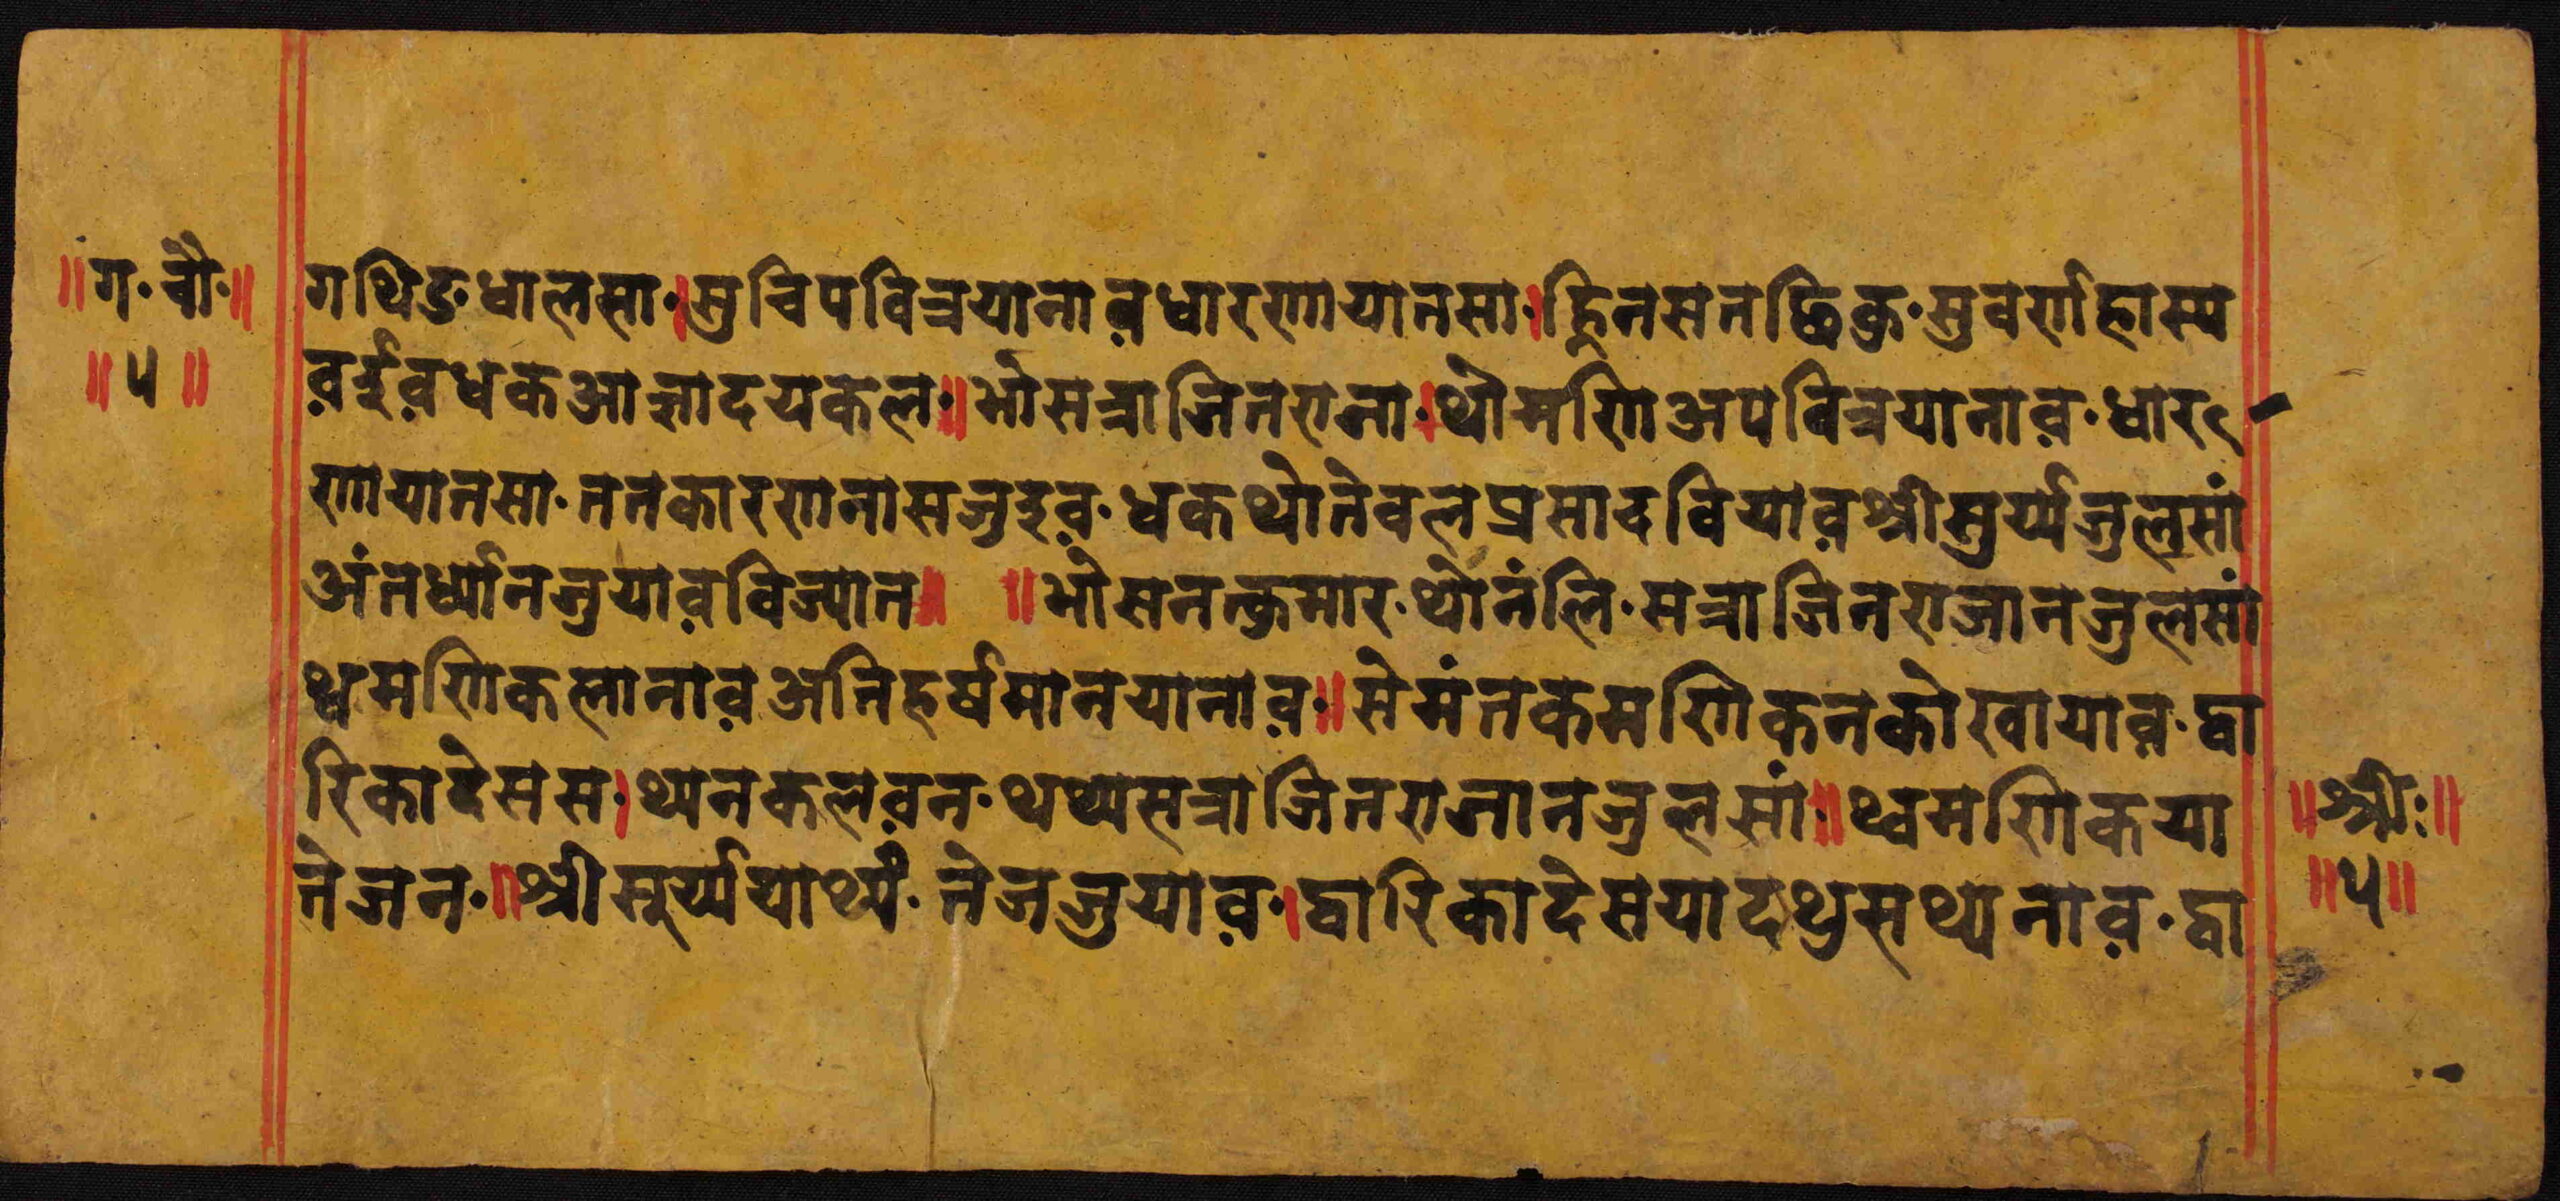 ॥ग·चौ·॥
॥५॥
गथिङधालसा·।सुचिपवित्रयानाव़धारणायानसा·।ह्निनसनछिकु·सुवर्णह्रास्य
व़ईव़धकआज्ञादयकल·॥भोसत्राजितराजा·।थौमणिअपवित्रयानाव़·धार
णायानसा·ततकारणनासजुइव़·धकथोतेवलप्रसादवियाव़श्रीसुर्य्यजुलसां
अंतर्ध्यानजुयाव़विज्यात॥ ॥भोसनत्कुमार·थोनंलि·सत्राजितराजानजुलसां
थ्वमणिकलानाव़अतिहर्षमानयानाव़·॥सेमंतकमणिकनकोखायाव़·द्वा
रिकादेसस·।थ्यनकलव़न·थथ्यसत्राजितराजानजुलसां·॥थ्वमणिकया
तेजन·॥श्रीसूर्य्ययाथ्यं·तेजजुयाव़·।द्वारिकादेसयादथुसथ्यनाव़·द्वा
॥श्रीः॥
॥५॥